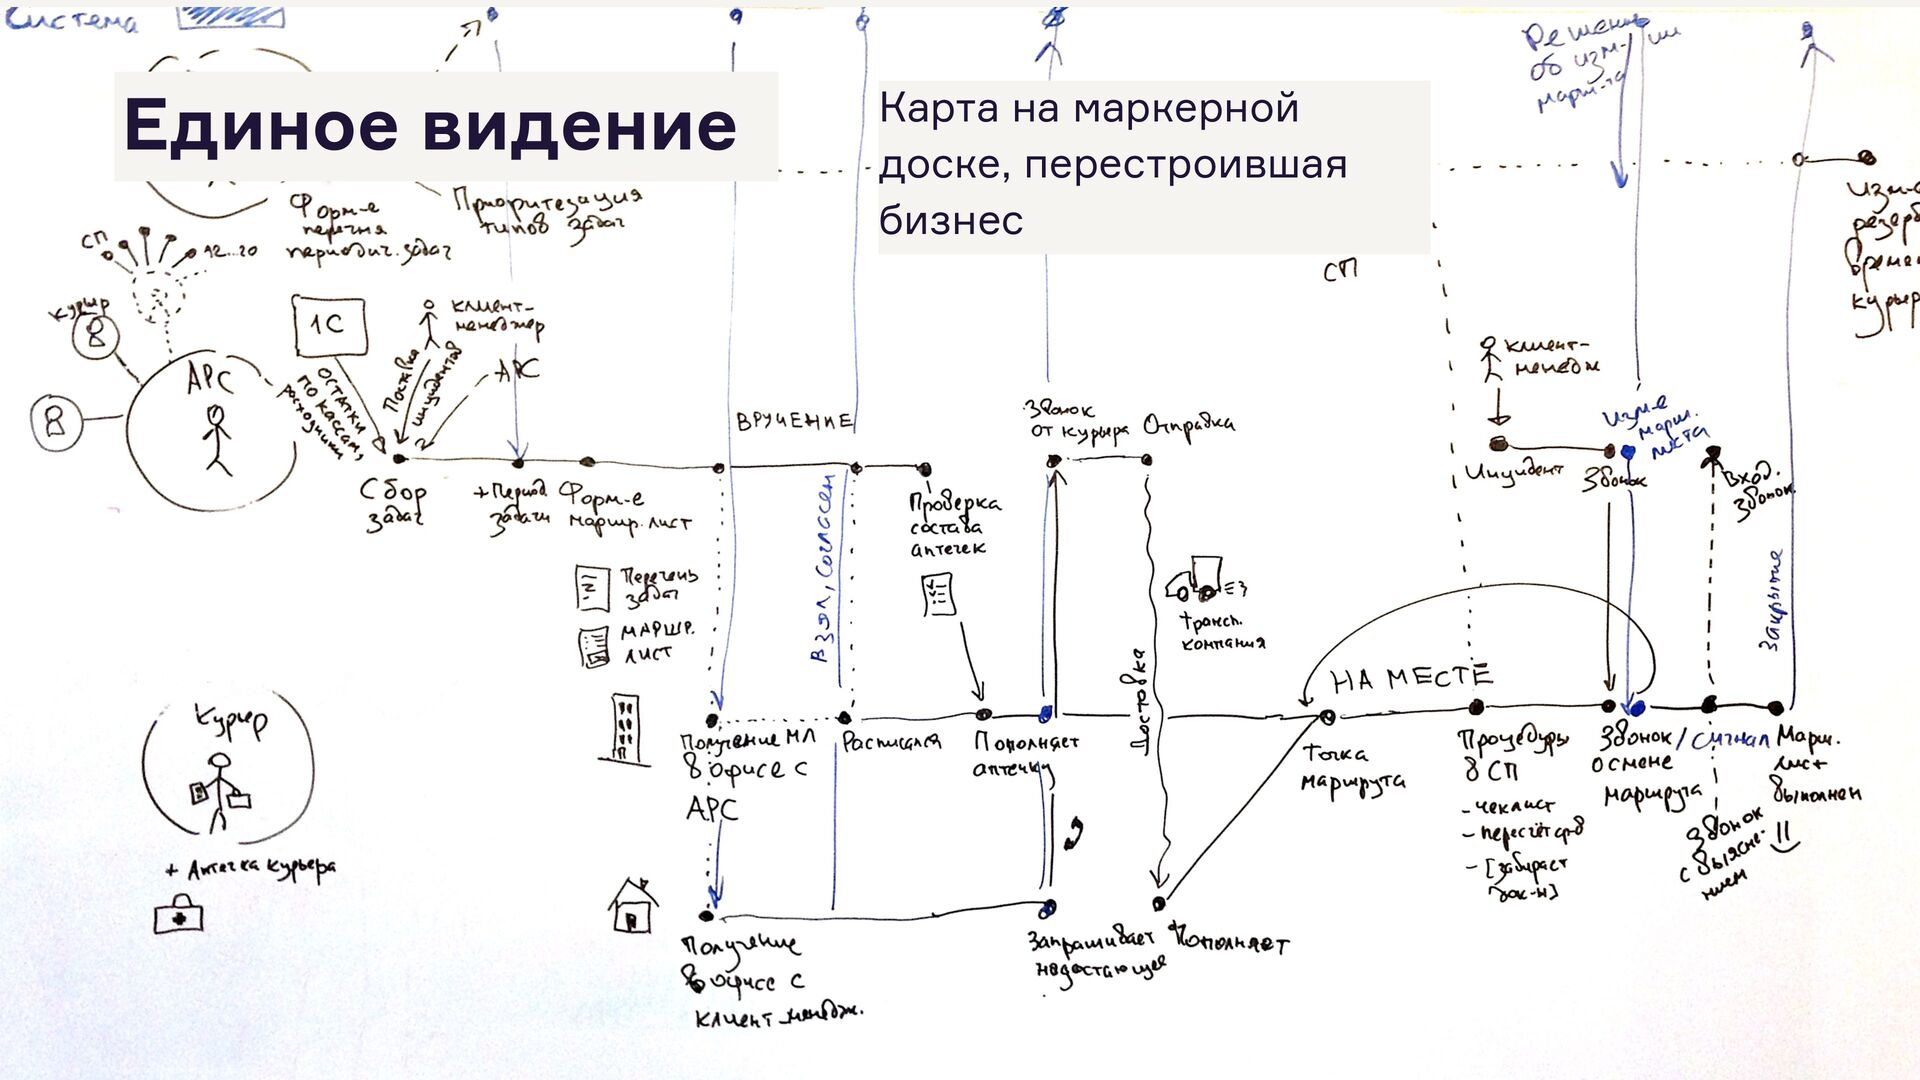 Система
Единое видение
Карта на маркерной
доске, перестроившая
бизнес
Решен
об изм-
марш-та
Форм-е
перечня
периодич. задач
Приоритезация
типов задач
СП
12...20
курьер
АРС
1С
остатки
по кассам,
расходники
Поставка
инцидентов
клиент-
менеджер
АРС
СП
Изм-
резерв
времен
курьер
клиент-
менедж
Инцидент
Звонок
Изм-е
марш.
листа
Вход.
Звонок
ВРУЧЕНИЕ
Звонок
от курьера
Отправка
Сбор
задач
+Период
задачи
Форм-е
маршр. лист
Проверка
состава
аптечек
Взял, согласен
Перечень
задач
МАРШР.
ЛИСТ
трансп.
компания
Доставка
Закрытие
НА МЕСТЕ
Курьер
+ Аптечка курьера
Получение МЛ
в офисе с
АРС
Расписался
Пополняет
аптечку
Точка
маршрута
Процедуры
в СП
- чеклист
- пересчёт ср-в
- [забирает
док-и]
Звонок / сигнал
о смене
маршрута
Звонок
с выясне-
нием
Марш.
лист
выполнен
Получение
в офисе с
клиент_менедж.
Запрашивает
недостающее
Пополняет